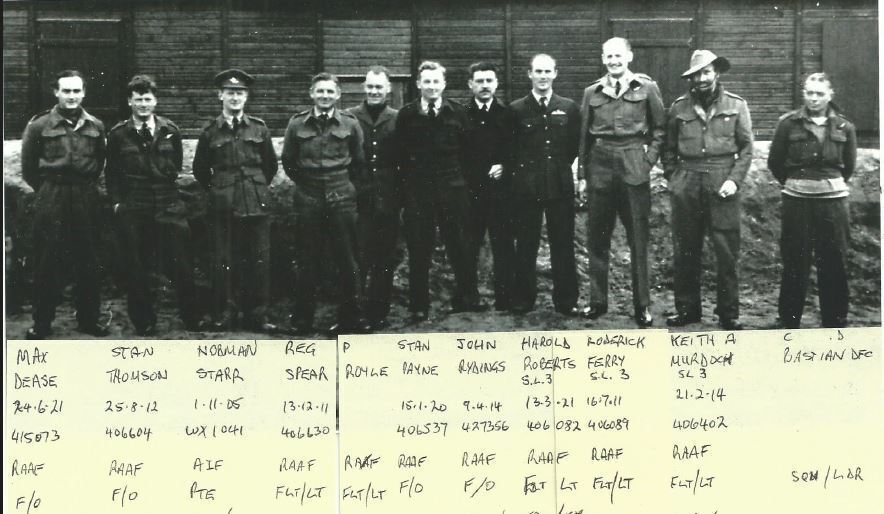 MAX STAN NORMAN REG P STAN JOHN HAROLD RODERICK KEITH A C .D
DEASE THOMSON STARR SPEAR ROYLE PAYNE RYDINGS ROBERTS FERRY MURDOCH BASTIAN DFC
S.L.3 S.L.3 SL3
24.6.21 25.8.12 1.11.05 13.12.11 15.1.20 9.4.14 13.3.21 16.7.11 21.2.14
415073 406604 WX1041 406630 406537 427356 406082 406089 406402
RAAF RAAF AIF RAAF RAAF RAAF RAAF RAAF RAAF RAAF
F/O F/O PTE FLT/LT FLT/LT F/O F/O FLT LT FLT/LT FLT/LT SQN/LDR